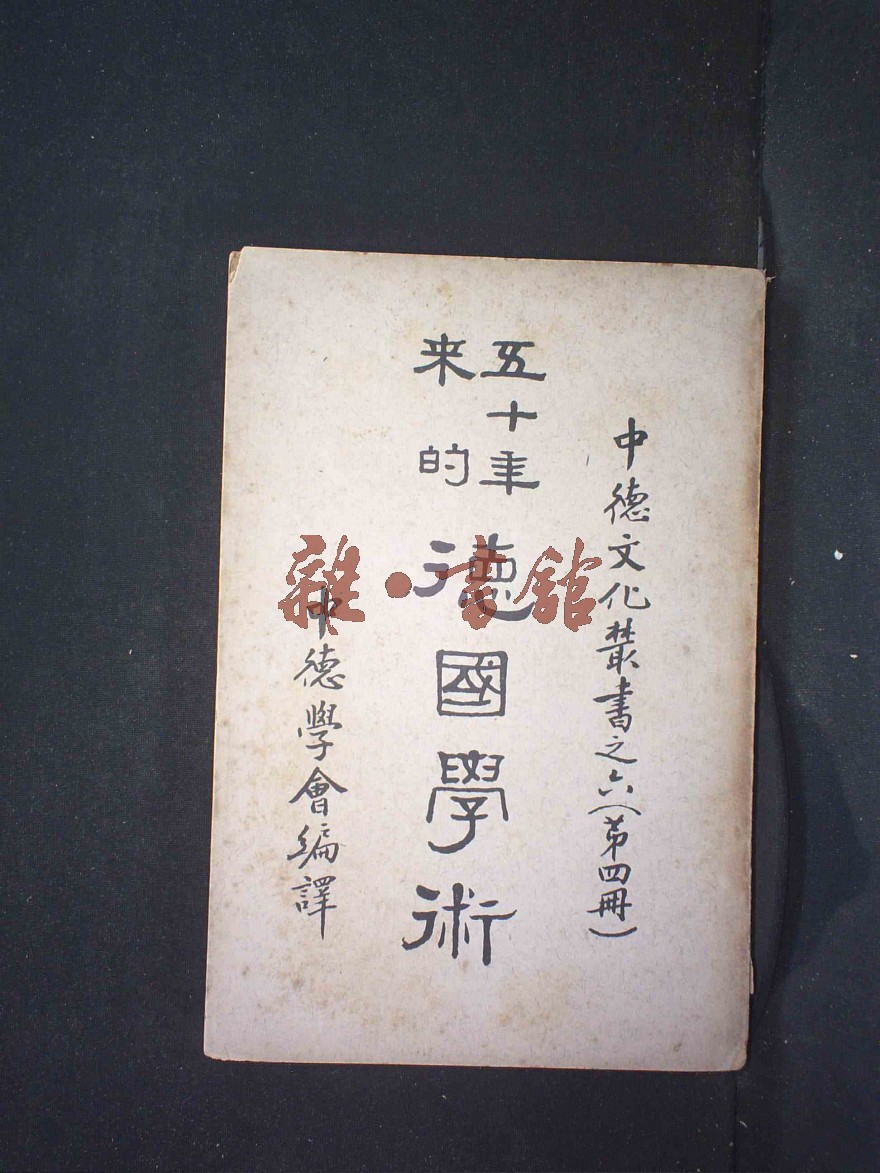 中德文化叢書之六（第四冊）
五十年
来的
德國學術
中德學會編譯
雜·書館